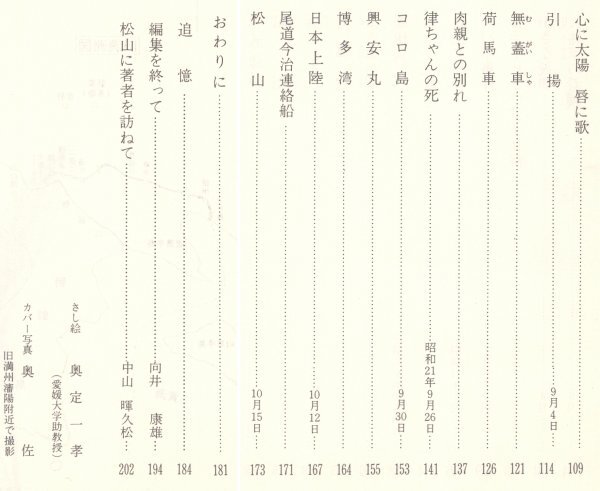 心に太陽 唇に歌……109
引揚……9月4日…114
無蓋車……121
む がい しゃ
荷馬車……126
肉親との別れ……137
律ちゃんの死……昭和21年9月26日…141
コロ島……9月30日…153
興安丸……155
博多湾……164
日本上陸……10月12日…167
尾道今治連絡船……171
松山……10月15日…173
おわりに……181
追憶……184
編集を終って……向井 康雄…194
松山に著者を訪ねて……中山 暉久松…202
さし絵 奥定一孝
(愛媛大学助教授)
カバー写真 奥 佐
旧満州瀋陽附近で撮影